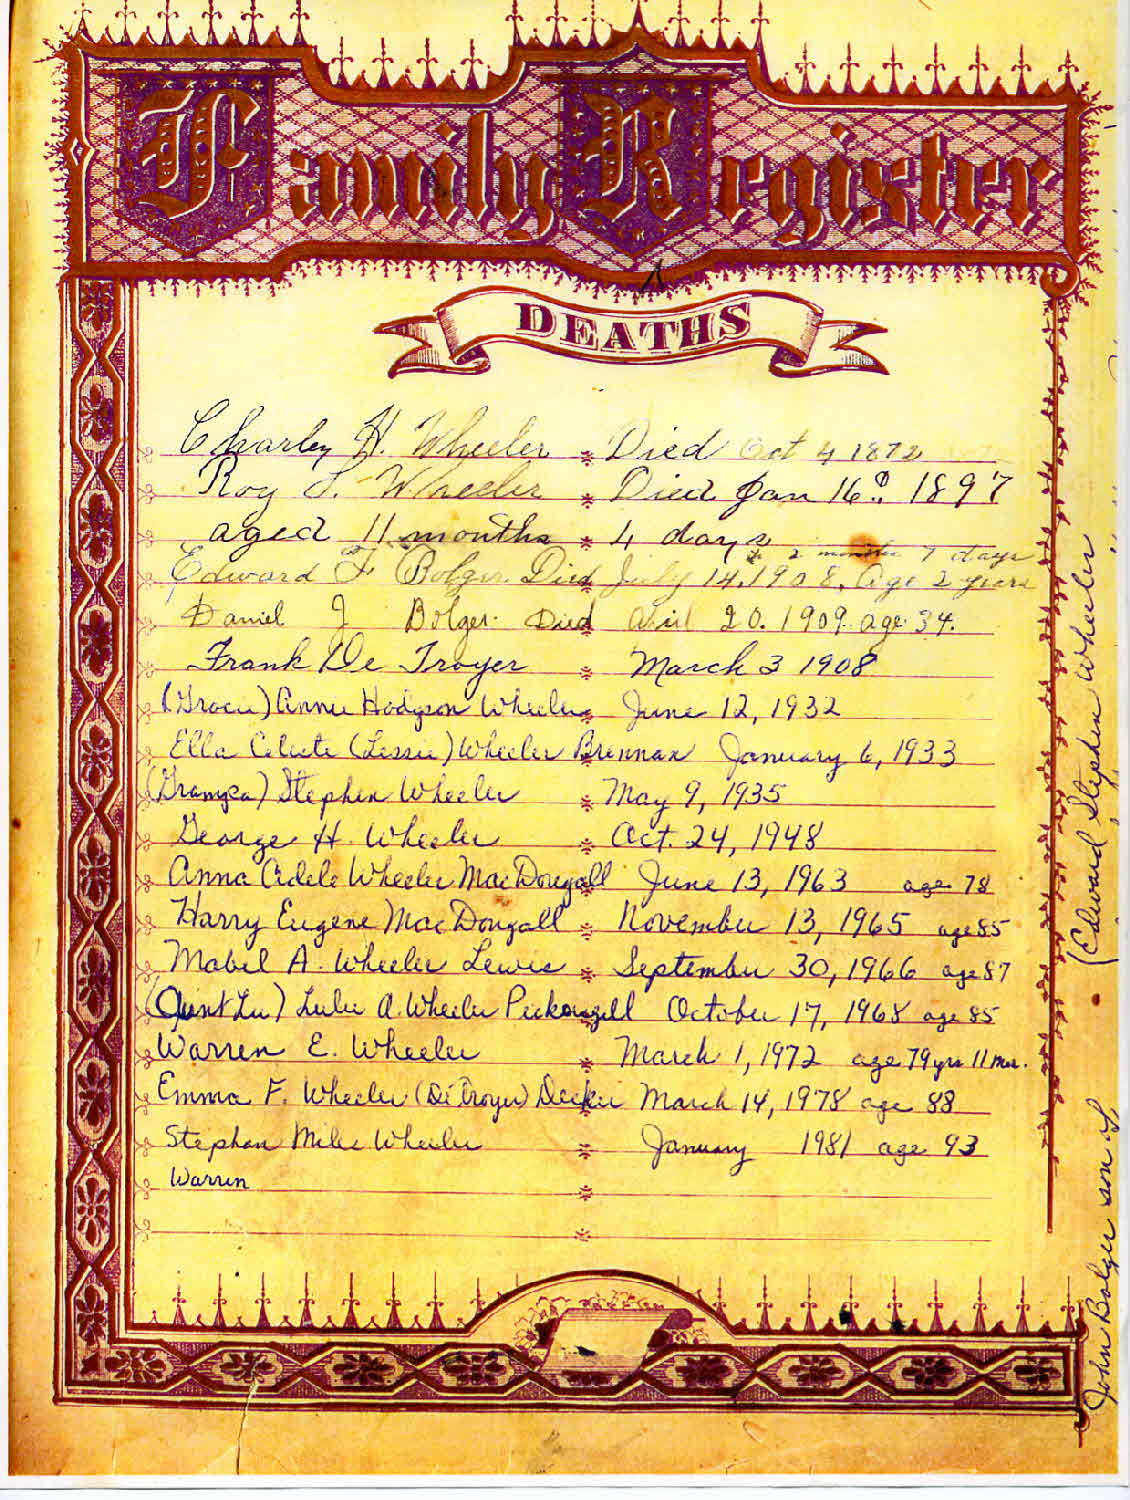 Family Register
DEATHS
Charley H. Wheeler Died Oct 4 1872
Roy L. Wheeler Died Jan 16th 1897
aged 11 months 4 days
2 months 7 days
Edward F Bolger. Died July 14, 1908. Age 2 years
Daniel J Bolger. Died April 20. 1909. age 34.
Frank De Troyer March 3 1908
(Gracie) Annie Hodgson Wheeler June 12, 1932
Ella Celeste (Lessie) Wheeler Brennan January 6, 1933
(Grampa) Stephen Wheeler May 9, 1935
George H. Wheeler Oct. 24, 1948
Anna Adele Wheeler MacDougall June 13, 1963 age 78
Harry Eugene MacDougall November 13, 1965 age 85
Mabel A. Wheeler Lewis September 30, 1966 age 87
(Aunt Lu) Lulu A. Wheeler October 17, 1968 age 85
Warren E. Wheeler March 1, 1972 age 79 yrs 11 mos.
Emma F. Wheeler (De Troyer) Decker March 14, 1978 age 88
Stephen Wheeler January 1981 age 93
Warren
John Bolger son of
(Edward Stephen Wheeler